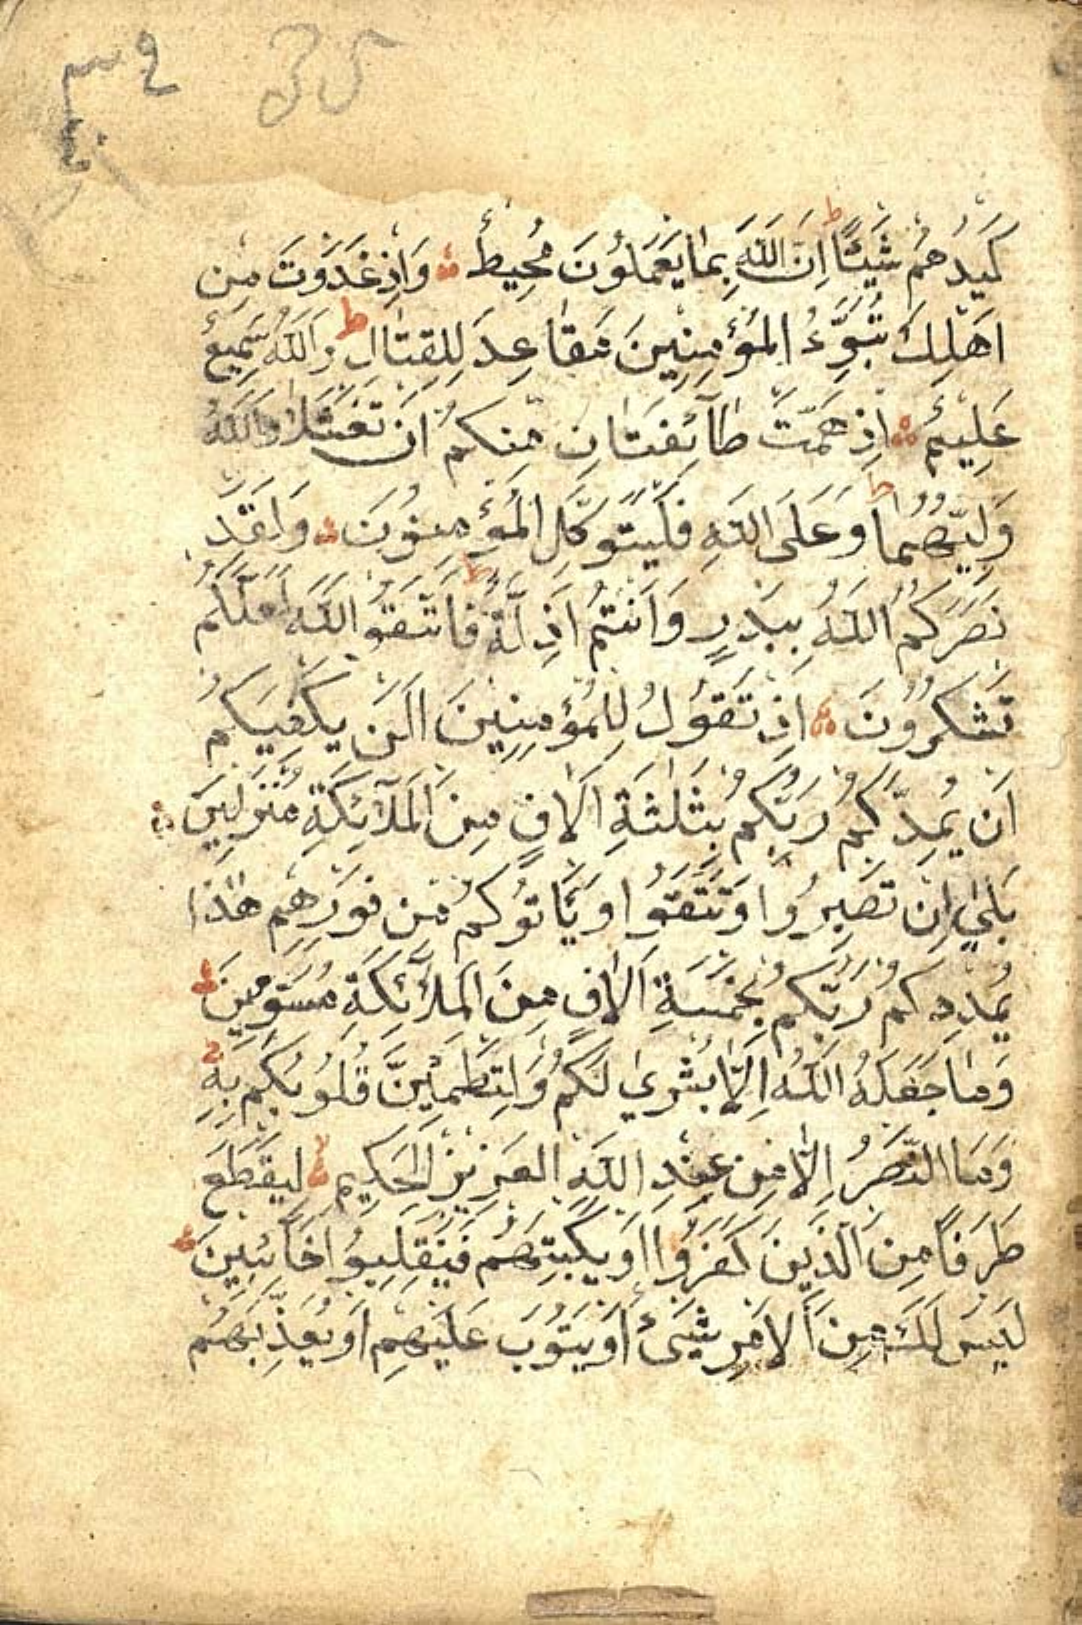 كَيْدُهُمْ شَيْئًا ط اِنَّ اللّٰهَ بِمَا يَعْمَلُوْنَ مُحِيْطٌ وَاِذْ غَدَوْتَ مِنْ
اَهْلِكَ تُبَوِّءُ الْمُؤْمِنِيْنَ مَقَاعِدَ لِلْقِتَالِ ط وَاللّٰهُ سَمِيْعٌ
عَلِيْمٌ اِذْ هَمَّتْ طَآئِفَتَانِ مِنْكُمْ اَنْ تَفْشَلَا وَاللّٰهُ
وَلِيُّهُمَا ط وَعَلَى اللّٰهِ فَلْيَتَوَكَّلِ الْمُؤْمِنُوْنَ وَلَقَدْ
نَصَرَكُمُ اللّٰهُ بِبَدْرٍ وَاَنْتُمْ اَذِلَّةٌ ط فَاتَّقُوا اللّٰهَ لَعَلَّكُمْ
تَشْكُرُوْنَ اِذْ تَقُوْلُ لِلْمُؤْمِنِيْنَ اَلَنْ يَكْفِيَكُمْ
اَنْ يُمِدَّكُمْ رَبُّكُمْ بِثَلٰثَةِ اٰلَافٍ مِنَ الْمَلَآئِكَةِ مُنْزَلِيْنَ
بَلٰى اِنْ تَصْبِرُوْا وَتَتَّقُوْا وَيَاْتُوْكُمْ مِنْ فَوْرِهِمْ هٰذَا
يُمْدِدْكُمْ رَبُّكُمْ بِخَمْسَةِ اٰلَافٍ مِنَ الْمَلَآئِكَةِ مُسَوِّمِيْنَ
وَمَا جَعَلَهُ اللّٰهُ اِلَّا بُشْرٰى لَكُمْ وَلِتَطْمَئِنَّ قُلُوْبُكُمْ بِهٖ
وَمَا النَّصْرُ اِلَّا مِنْ عِنْدِ اللّٰهِ الْعَزِيْزِ الْحَكِيْمِ لا لِيَقْطَعَ
طَرَفًا مِنَ الَّذِيْنَ كَفَرُوْا اَوْ يَكْبِتَهُمْ فَيَنْقَلِبُوْا خَآئِبِيْنَ
لَيْسَ لَكَ مِنَ الْاَمْرِ شَيْءٌ اَوْ يَتُوْبَ عَلَيْهِمْ اَوْ يُعَذِّبَهُمْ